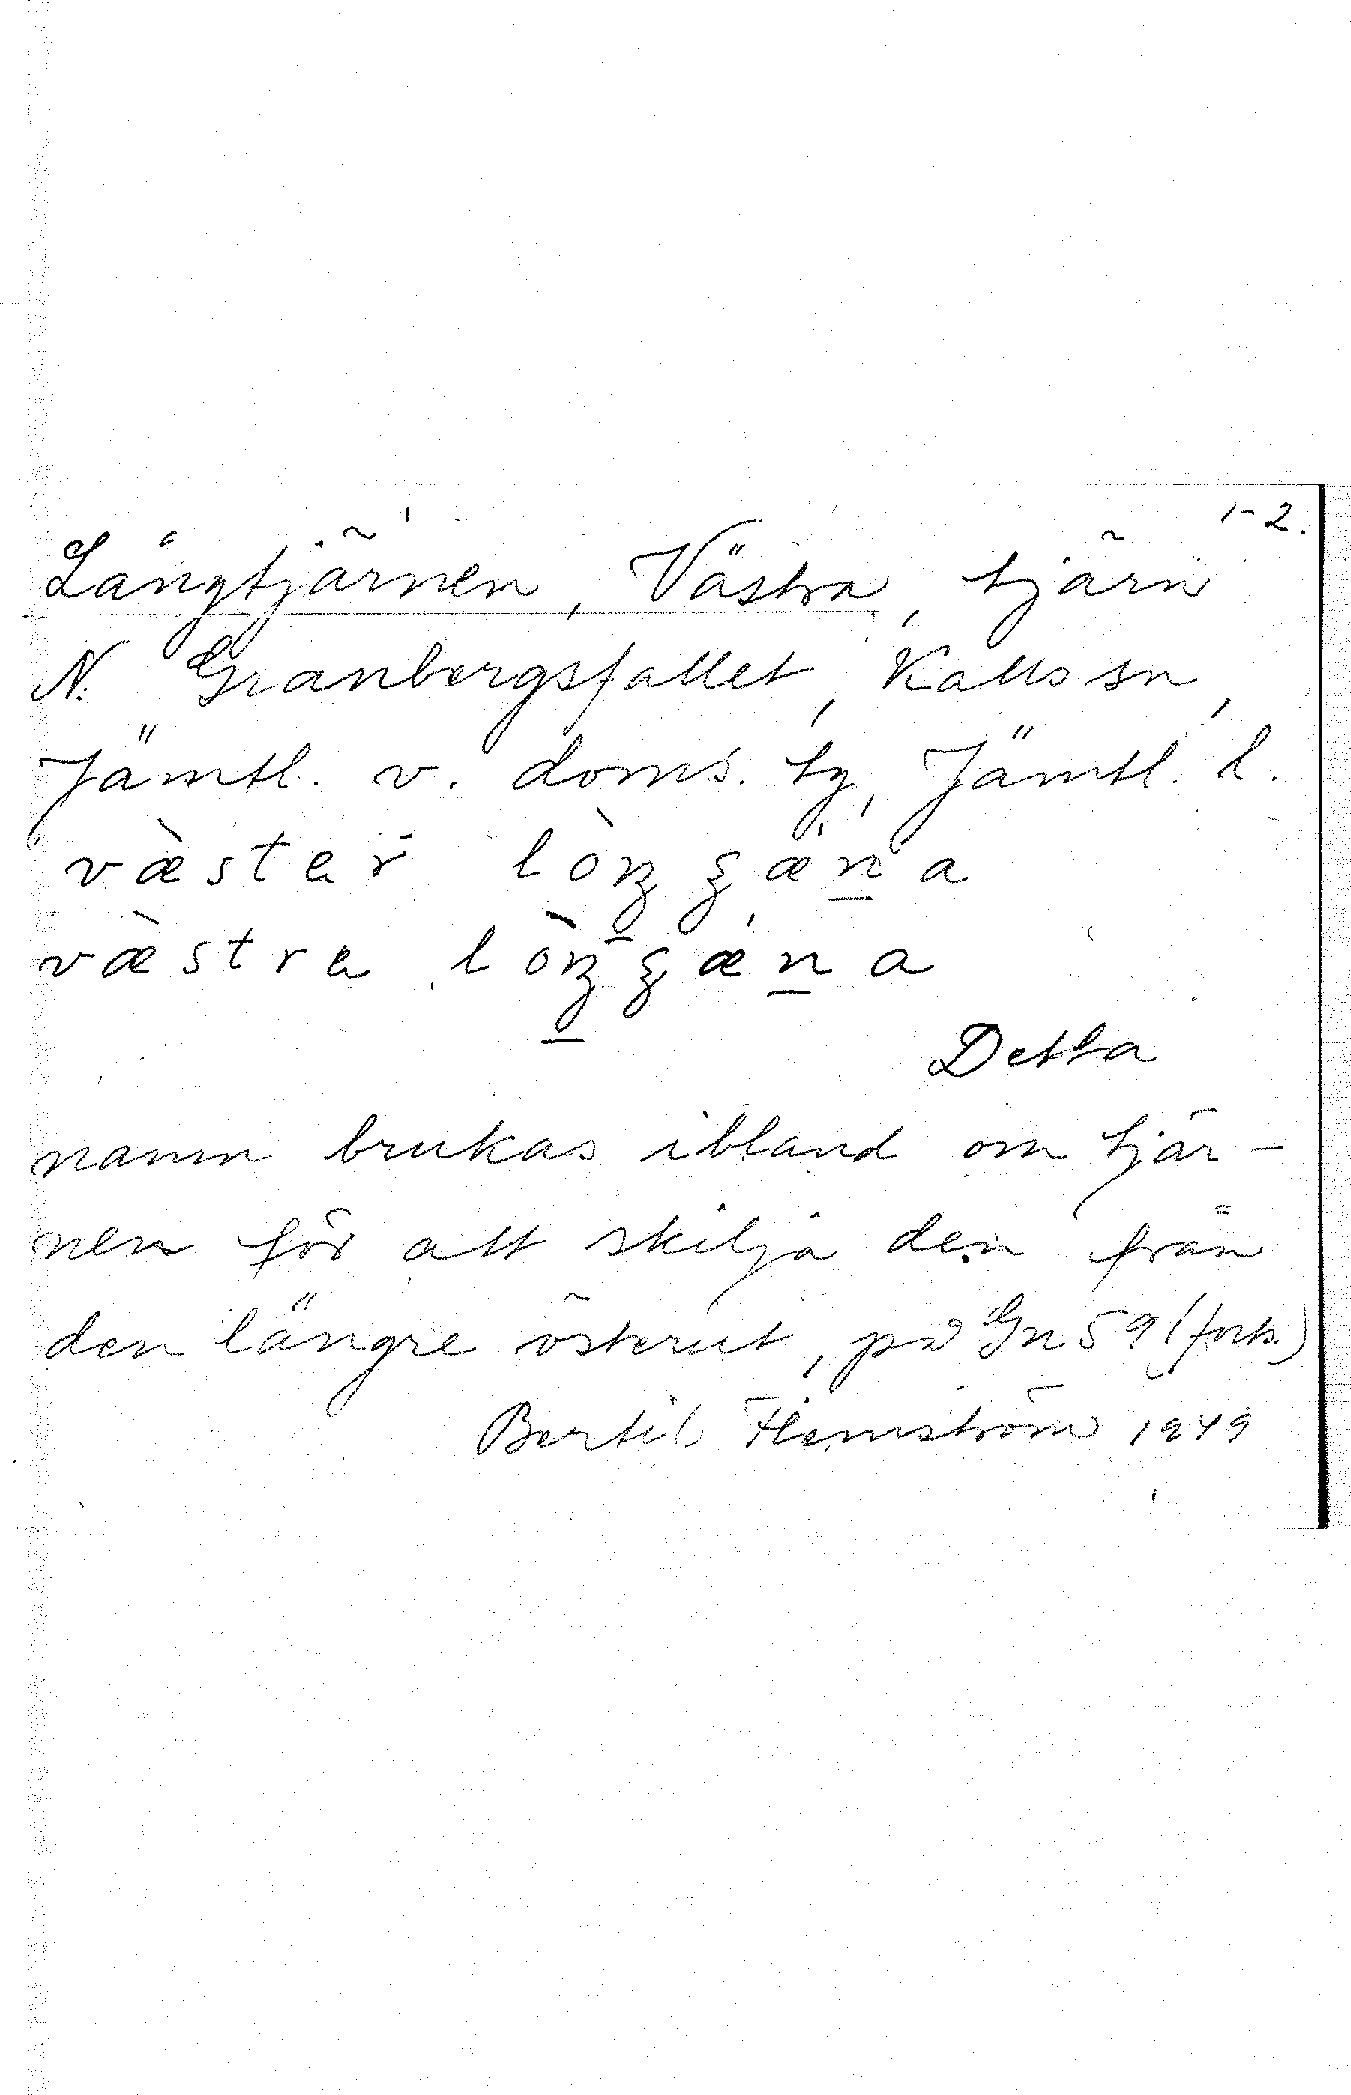 1-2.
Långtjärnen, Västra, tjärn
N. Granbergsfallet, Kalls sn,
Jämtl. v. doms. tg, Jämtl. l.
væster
væstra
Detta
namn brukas ibland om tjär-
nen för att skilja den från
den längre österut, på Gn 59 (forts.)
Bertil Flemström 1949